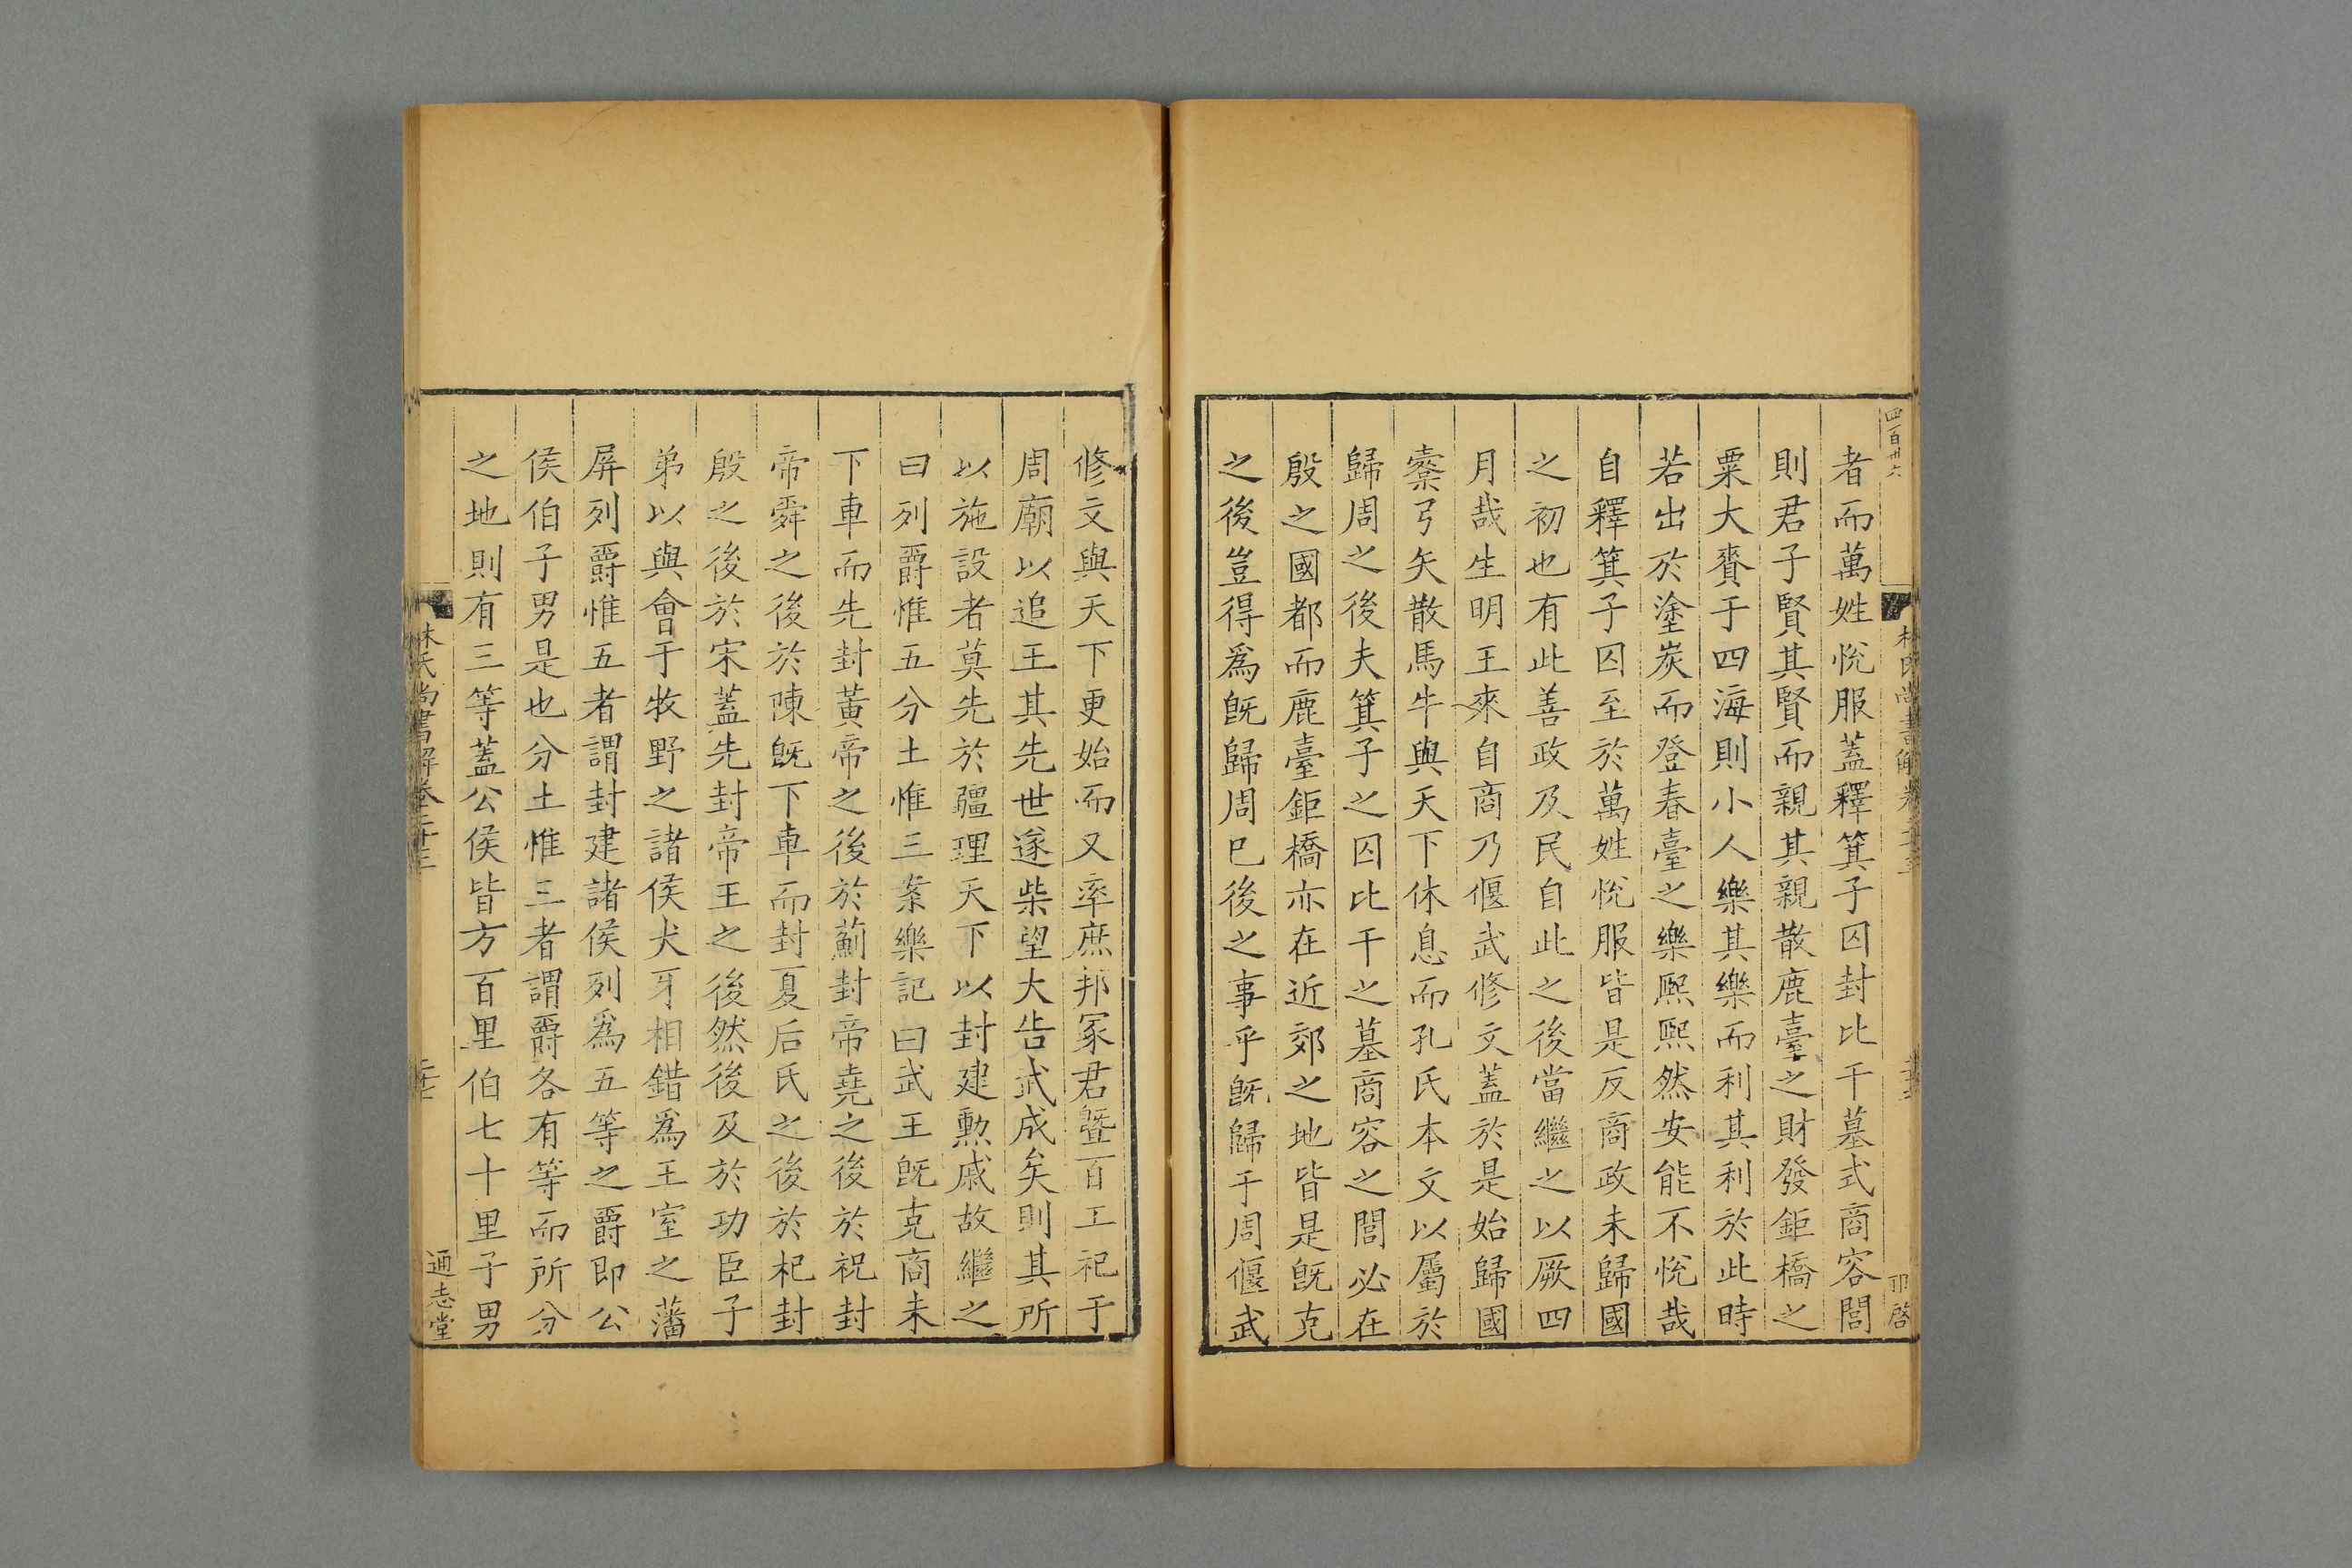 四百卅六
者而萬姓悅服蓋釋箕子囚封比干墓式商容閭
則君子賢其賢而親其親散鹿臺之財發鉅橋之
粟大賚于四海則小人樂其樂而利其利於此時
若出於塗炭而登春臺之樂熙熙然安能不悅哉
自釋箕子囚至於萬姓悅服皆是反商政未歸國
之初也有此善政及民自此之後當繼之以厥四
月哉生明王來自商乃偃武修文蓋於是始歸國
櫜弓矢散馬牛與天下休息而孔氏本文以屬於
歸周之後夫箕子之囚比干之墓商容之閭必在
殷之國都而鹿臺鉅橋亦在近郊之地皆是旣克
之後豈得爲旣歸周已後之事乎旣歸于周偃武
修文與天下更始而又率庶邦冢君曁百工祀于
周廟以追王其先世遂柴望大告武成矣則其所
以施設者莫先於疆理天下以封建勲戚故繼之
曰列爵惟五分土惟三案樂記曰武王旣克商未
下車而先封黃帝之後於薊封帝堯之後於祝封
帝舜之後於陳旣下車而封夏后氏之後於杞封
殷之後於宋蓋先封帝王之後然後及於功臣子
弟以與會于牧野之諸侯犬牙相錯爲王室之藩
屏列爵惟五者謂封建諸侯列爲五等之爵即公
侯伯子男是也分土惟三者謂爵各有等而所分
之地則有三等蓋公侯皆方百里伯七十里子男
林氏尚書解卷二十三
通志堂